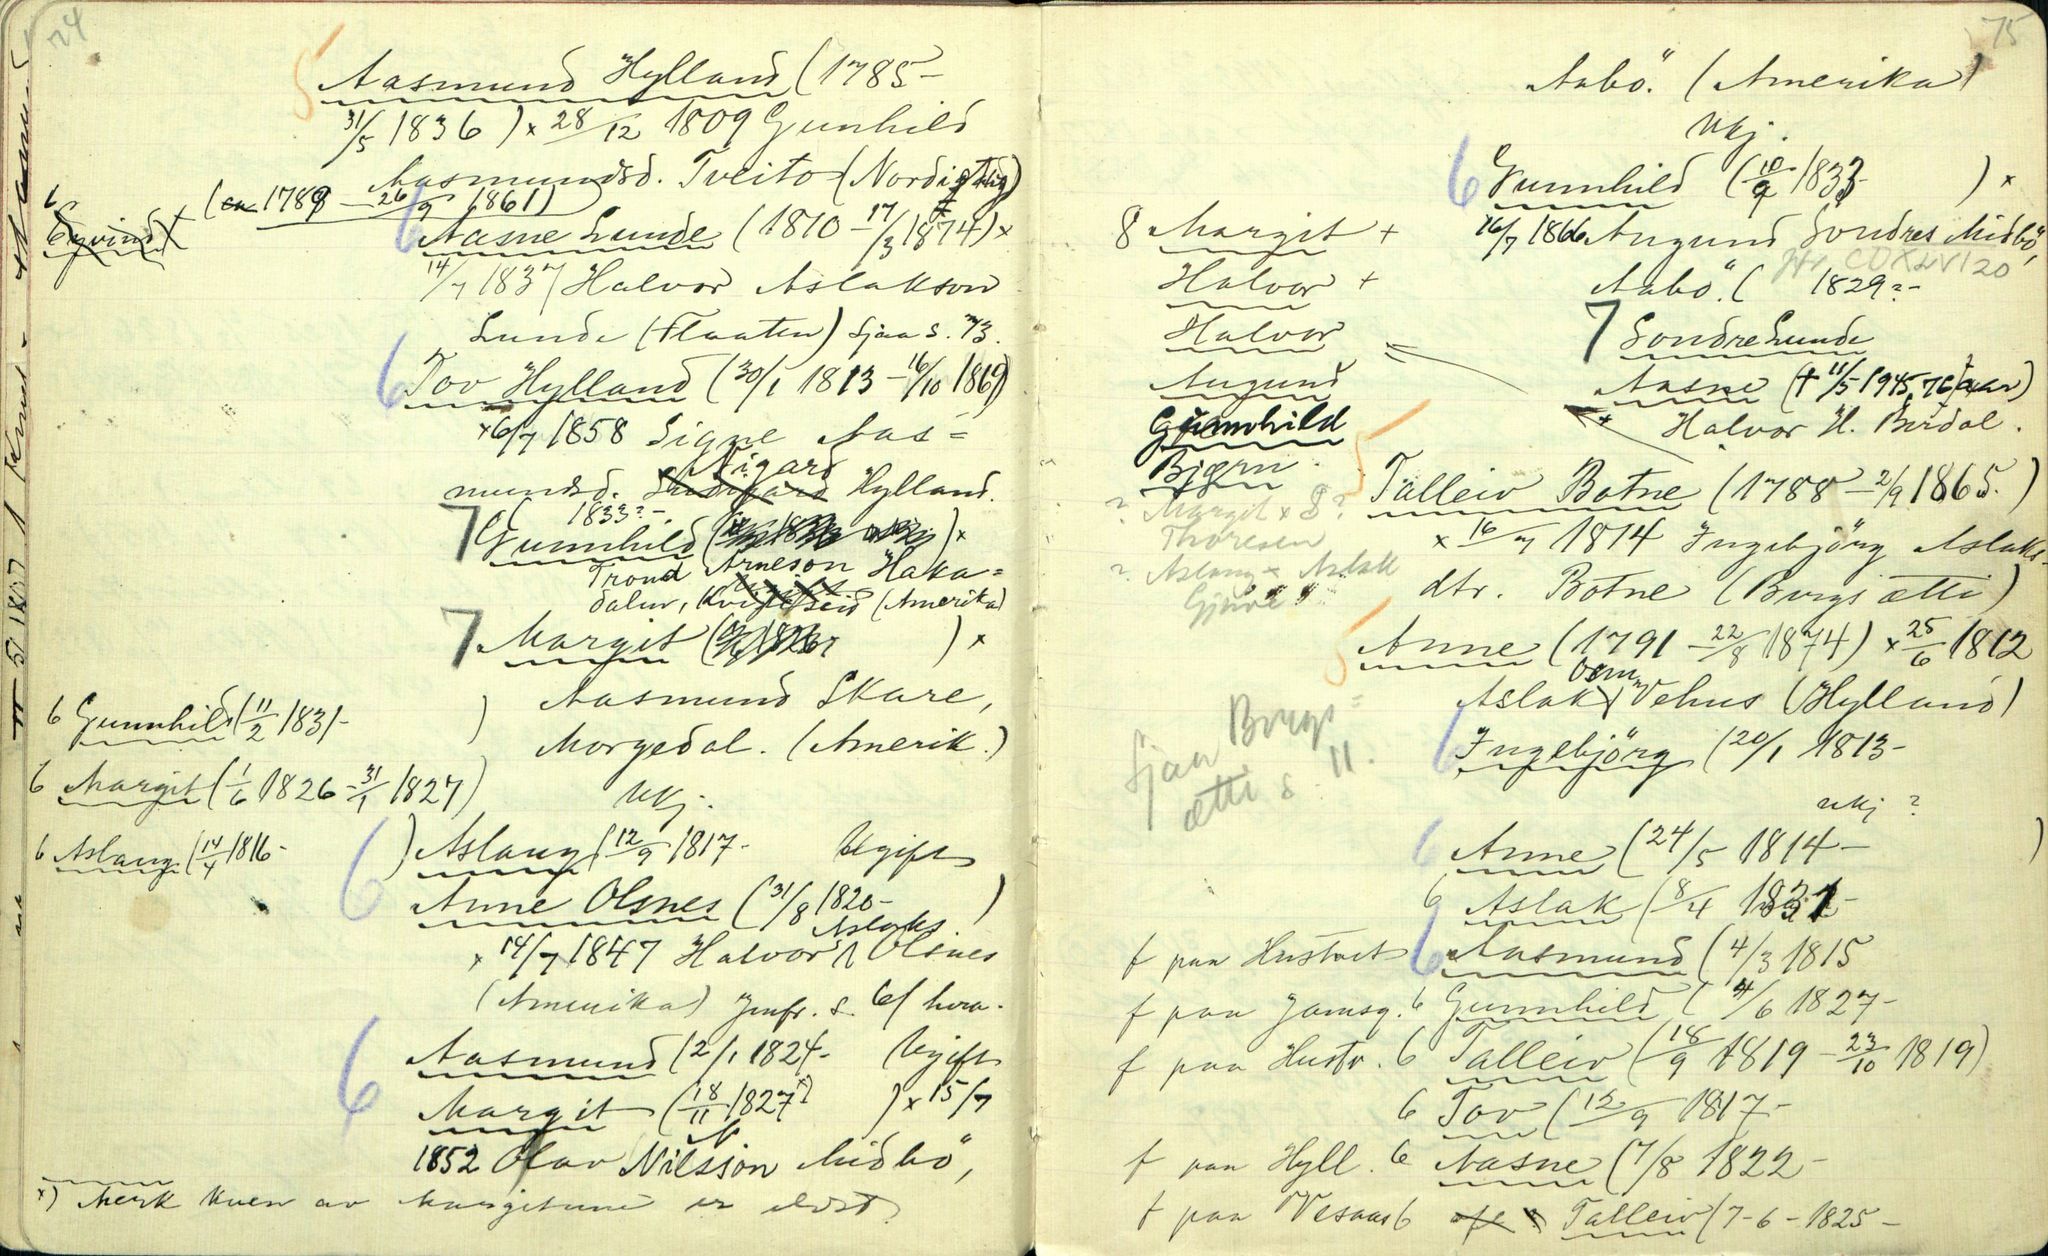 24
5 Aasmund Hylland (1785-
31/5 1836) x 28/12 1809 Gunhild
Aasmundsd. Tveito (Nordigard)
(ca 1789 - 26/9 1861)
6 Eyvind
6 Aasne Lunde (1810 - 17/3 1874) x
14/7 1837 Halvor Aslakson
Lunde (Flaaten) Sjaa s. 73.
6 Tov Hylland (30/1 1813 - 16/10 1869)
x 6/7 1858 Signe Aas=
mundsd. Nigard Hylland.
1833?-
7 Gunnhild ( ) x
Trond Arneson Haka=
dalen, Kviteseid (Amerika)
7 Margit ( ) x
Aasmund Skare,
Morgedal. (Amerik.)
6 Gunnhild (11/2 1831- )
6 Margit (1/6 1826 - 31/1 1827)
Ukj.
6 Aslaug (14/4 1816- )
6 Aslaug (12/9 1817- Ugift
Anne Olsnes (31/8 1820- )
x 14/7 1847 Halvor Aslaks. Olsnes
(Amerika) Jmfr. s. 61 hera.
6 Aasmund (2/1 1824- Ugift
Margit (18/11 1827 x) ) x 15/7
1852 Olav N Nilsson Midbö,
x) Merk kven av Margitune er eldst?
75
Aabö. (Amerika)
Ukj.
6 Gunnhild (10/9 1833- ) x
16/7 1866 Augund Sondres Midbö,
Aabö. ( 1829?-
7 Sondre Lunde
Aasne (+ 11/5 1945, 76 aar)
x Halvor H. Birdal.
8 Margit +
Halvor +
Halvor
Augund
Gunnhild
Bjørn.
? Margit x S?
Thoresen
? Aslaug x Aslak
Gjuve
5 Talleiv Botne (1788 - 2/9 1865.)
x 16/7 1814 Ingebjörg Aslaks-
dtr. Botne (Borgs ætti)
5 Anne (1791 - 22/8 1874) x 25/6 1812
Aslak Osm. Vehus (Hylland)
Sjaa Borgs=
ætti s 11.
6 Ingebjörg (20/1 1813-
ukj ?
6 Anne (24/5 1814- )
6 Aslak (8/4 1831-
f paa Hustveit 6 Aasmund (4/3 1815
f paa Jamsg. 6 Gunnhild (4/6 1827-
f paa Hustv. 6 Talleiv (18/9 1819 - 23/10 1819)
6 Tov (12/9 1817-
f paa Hyll. 6 Aasne (7/8 1822-
f paa Vesaas 6 Talleiv (7-6-1825-